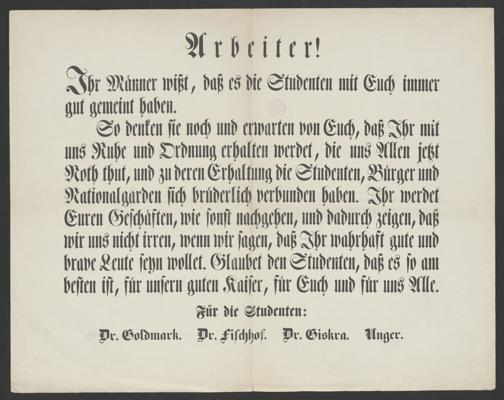 Arbeiter!
Ihr Männer wißt, daß es die Studenten mit Euch immer
gut gemeint haben.
So denken sie noch und erwarten von Euch, daß Ihr mit
uns Ruhe und Ordnung erhalten werdet, die uns Allen jetzt
Noth thut, und zu deren Erhaltung die Studenten, Bürger und
Nationalgarden sich brüderlich verbunden haben. Ihr werdet
Euren Geschäften, wie sonst nachgehen, und dadurch zeigen, daß
wir uns nicht irren, wenn wir sagen, daß Ihr wahrhaft gute und
brave Leute seyn wollet. Glaubet den Studenten, daß es so am
besten ist, für unsern guten Kaiser, für Euch und für uns Alle.
Für die Studenten:
Dr. Goldmark. Dr. Fischhof. Dr. Giskra. Unger.